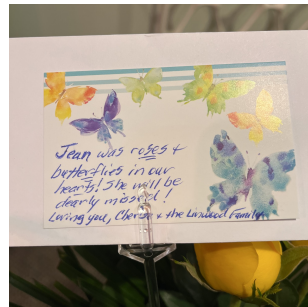 Jean was roses &
butterflies in our
hearts! She will be
dearly missed!
Loving you, Cheryl & the Linwood Family